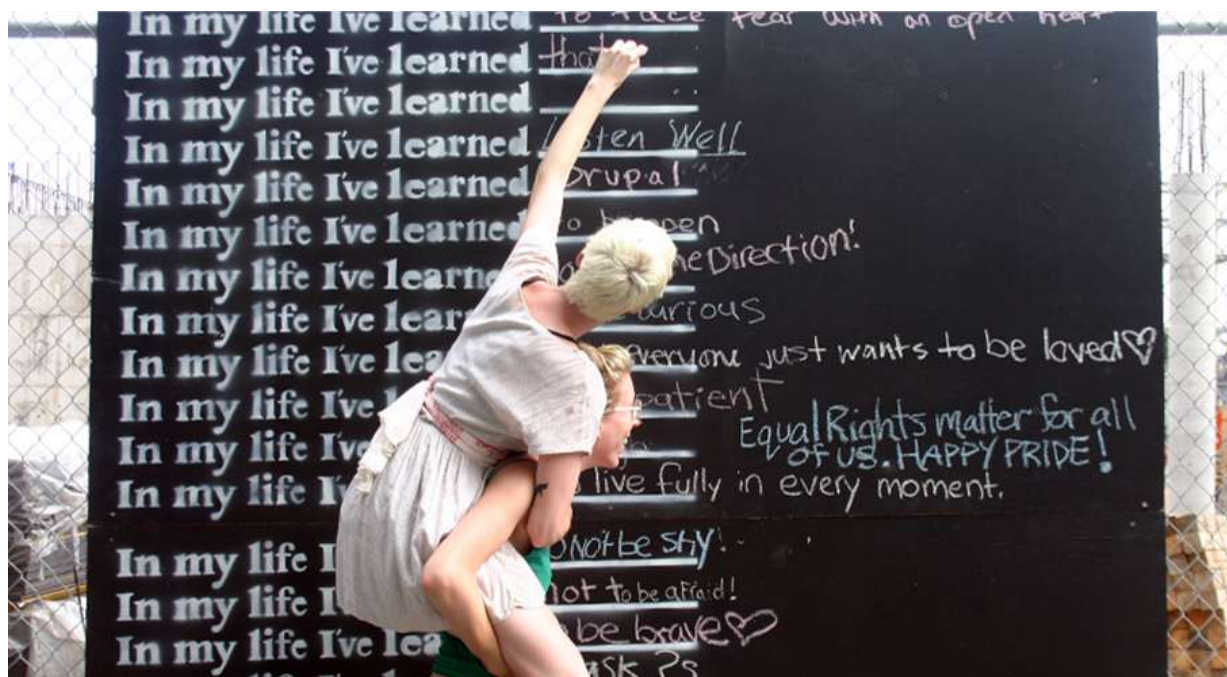 In my life I've learned to face fear with an open heart
In my life I've learned that
In my life I've learned
In my life I've learned Listen Well
In my life I've learned Drupal
In my life I've learned to be open
In my life I've learned Direction!
In my life I've curious
In my life I've everyone just wants to be loved♡
In my life I've patient
In my life I've
Equal Rights matter for all
of us. HAPPY PRIDE!
In my life live fully in every moment.
In my life Not be shy!
In my life not to be afraid!
In my life I've be brave♡
ask ?s